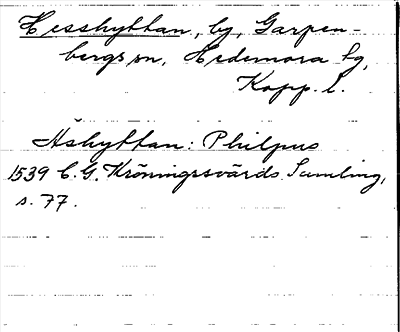 Hesshyttan, by, Garpen-
bergs sn, Hedemora tg,
Kopp. l.
Åshyttan: Philpus
1539 C. G. Kröningssvärds Samling,
s. 77.